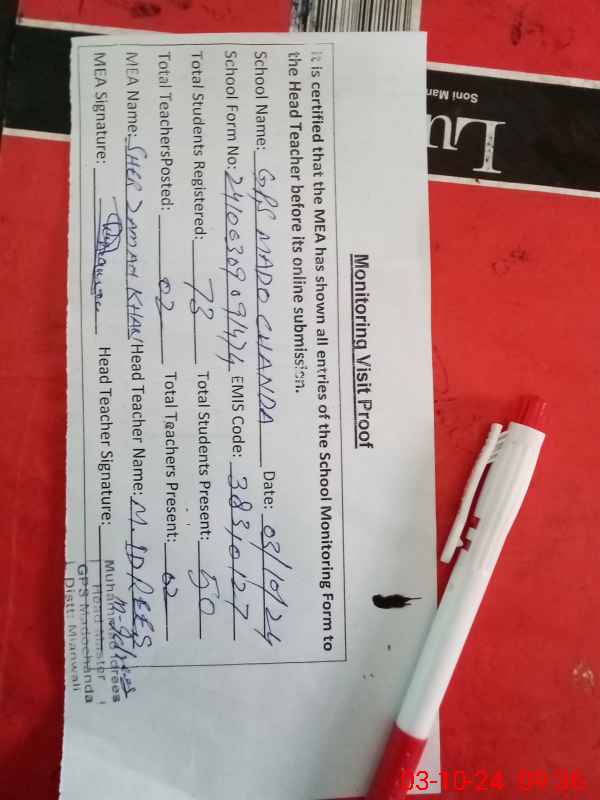 Monitoring Visit Proof
It is certified that the MEA has shown all entries of the School Monitoring Form to
the Head Teacher before its online submission.
School Name: GPS MADO CHANDA Date: 03/10/24
School Form No: 24100309091474 EMIS Code: 38310127
Total Students Registered: 73 Total Students Present: 50
Total TeachersPosted: 02 Total Teachers Present: 02
MEA Name: SHER ZAMAN KHAN Head Teacher Name: M. IDREES
MEA Signature: Head Teacher Signature:
Muhammad Idrees
Head Master
GPS Madochanda
Distt: Mianwali
Lu
Soni Mar
03-10-24 09:36